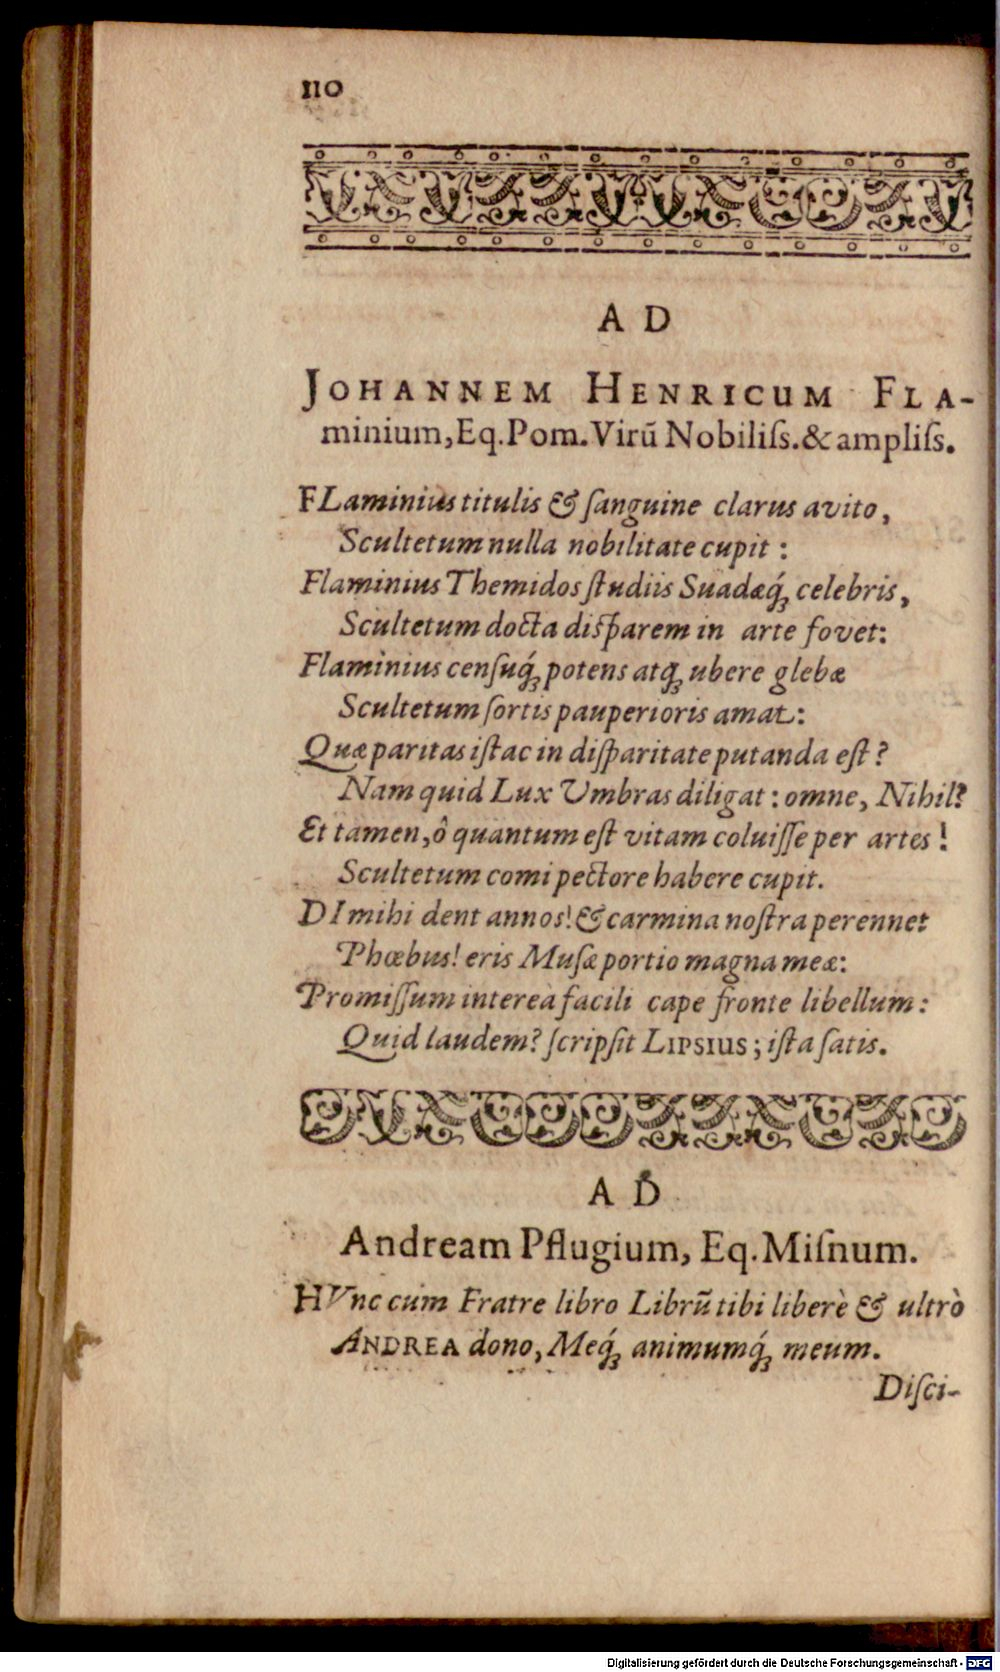 110
AD
JOHANNEM HENRICUM FLA-
minium, Eq. Pom. Virũ Nobiliſs. & ampliſs.
FLaminius titulis & ſanguine clarus avito,
Scultetum nulla nobilitate cupit :
Flaminius Themidos ſtudiis Suadæq́ꝫ celebris,
Scultetum docta diſparem in arte fovet:
Flaminius cenſuq́ꝫ potens atqꝫ ubere glebæ
Scultetum ſortis pauperioris amat:
Quæ paritas iſtac in diſparitate putanda eſt?
Nam quid Lux Umbras diligat : omne, Nihil?
Et tamen, ô quantum eſt vitam coluiſſe per artes !
Scultetum comi pectore habere cupit.
DI mihi dent annos! & carmina noſtra perennet
Phœbus! eris Muſæ portio magna meæ:
Promiſſum intereà facili cape fronte libellum :
Quid laudem? ſcripſit LIPSIUS ; iſta ſatis.
AD
Andream Pflugium, Eq. Miſnum.
HVnc cum Fratre libro Librũ tibi liberè & ultrò
ANDREA dono, Meq́ꝫ animumq́ꝫ meum.
Diſci-
Digitalisierung gefördert durch die Deutsche Forschungsgemeinschaft - DFG